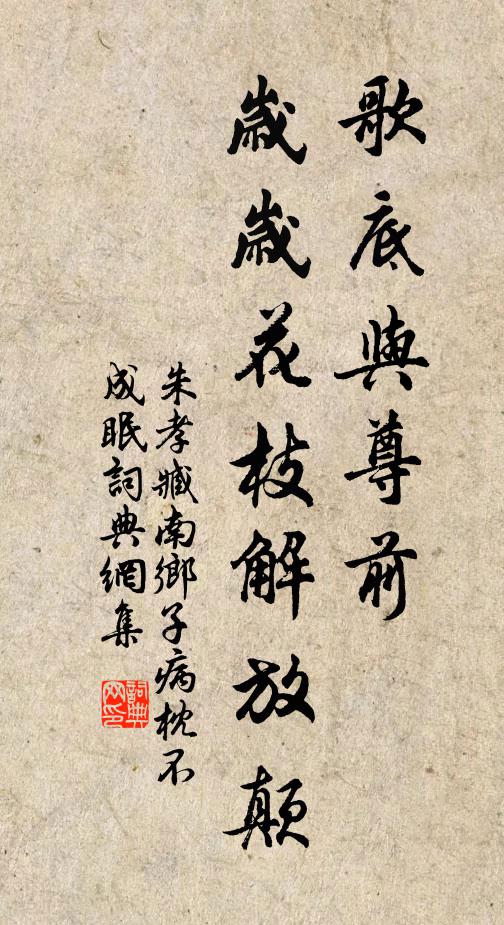 歌底與尊前
歲歲花枝解放顛
朱孝臧南鄉子病枕不
成眠詞典網集
詞典
网印